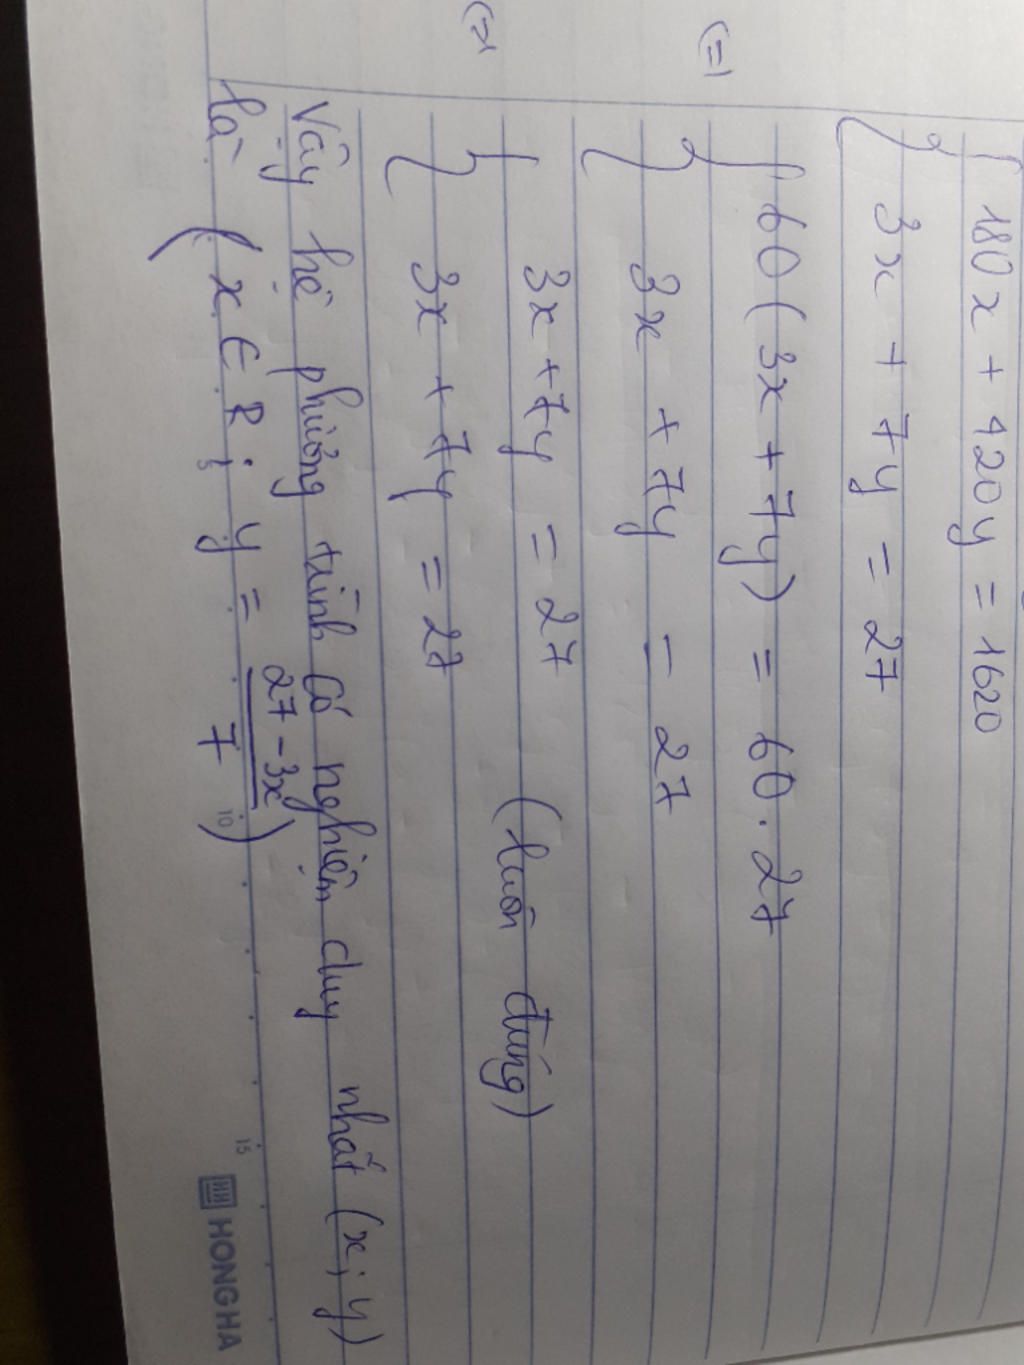 180x + 420y = 1620
3x + 7y = 27
(=) 60(3x + 7y) = 60.27
3x + 7y = 27
(=) 3x + 7y = 27 (luôn đúng)
3x + 7y = 27
Vậy hệ phương trình có nghiệm duy nhất (x; y)
là (x ∈ R; y = \frac{27 - 3x}{7})
5 10 15
HONG HA